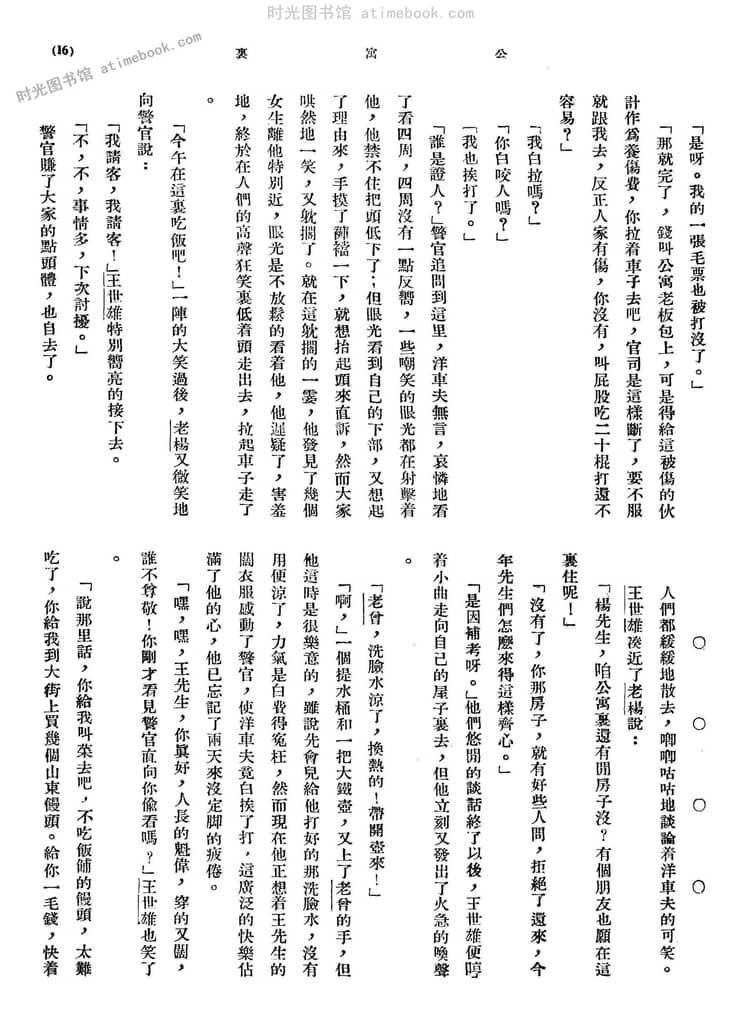 时光图书馆 atimebook.com
时光图书馆 atimebook.com
公寓裏
(16)
「是呀。我的一張毛票也被打沒了。」
「那就完了，錢叫公寓老板包上，可是得給這被傷的伙
計作爲養傷費，你拉着車子去吧，官司是這樣斷了，要不服
就跟我去，反正人家有傷，你沒有，叫屁股吃二十棍打還不
容易？」
「我白拉嗎？」
「你白咬人嗎？」
「我也挨打了。」
「誰是證人？」警官追問到這里，洋車夫無言，哀憐地看
了看四周，四周沒有一點反嚮，一些嘲笑的眼光都在射擊着
他，他禁不住把頭低下了；但眼光看到自己的下部，又想起
了理由來，手摸了褲襠一下，就想抬起頭來直訴，然而大家
哄然地一笑，又躭擱了。就在這躭擱的一霎，他發見了幾個
女生離他特別近，眼光是不放鬆的看着他，他遲疑了，害羞
地，終於在人們的高聲狂笑裏低着頭走出去，拉起車子走了
。
「今午在這裏吃飯吧！」一陣的大笑過後，老楊又微笑地
向警官說：
「我請客，我請客！」王世雄特別嚮亮的接下去。
「不，不，事情多，下次討擾。」
警官賺了大家的點頭體，也自去了。
○ ○ ○ ○
人們都緩緩地散去，唧唧咕咕地談論着洋車夫的可笑。
王世雄凑近了老楊說：
「楊先生，咱公寓裏還有閒房子沒？有個朋友也願在這
裏住呢！」
「沒有了，你那房子，就有好些人問，拒絕了還來，今
年先生們怎麼來得這樣齊心。」
「是因補考呀。」他們悠閒的談話終了以後，王世雄便哼
着小曲走向自己的屋子裏去，但他立刻又發出了火急的喚聲
。
「老曾，洗臉水涼了，換熱的！帶開壺來！」
「啊，」一個提水桶和一把大鐵壺，又上了老曾的手，但
他這時是很樂意的，雖說先會兒給他打好的那洗臉水，沒有
用便涼了，力氣是白費得寃枉，然而現在他正想着王先生的
闊衣服感動了警官，使洋車夫竟白挨了打，這廣泛的快樂佔
滿了他的心，他已忘記了兩天來沒定脚的疲倦。
「嘿，嘿，王先生，你眞好，人長的魁偉，穿的又闊，
誰不尊敬！你剛才看見警官直向你偷看嗎？」王世雄也笑了
。
「說那里話，你給我叫菜去吧，不吃飯舖的饅頭，太難
吃了，你給我到大街上買幾個山東饅頭。給你一毛錢，快着